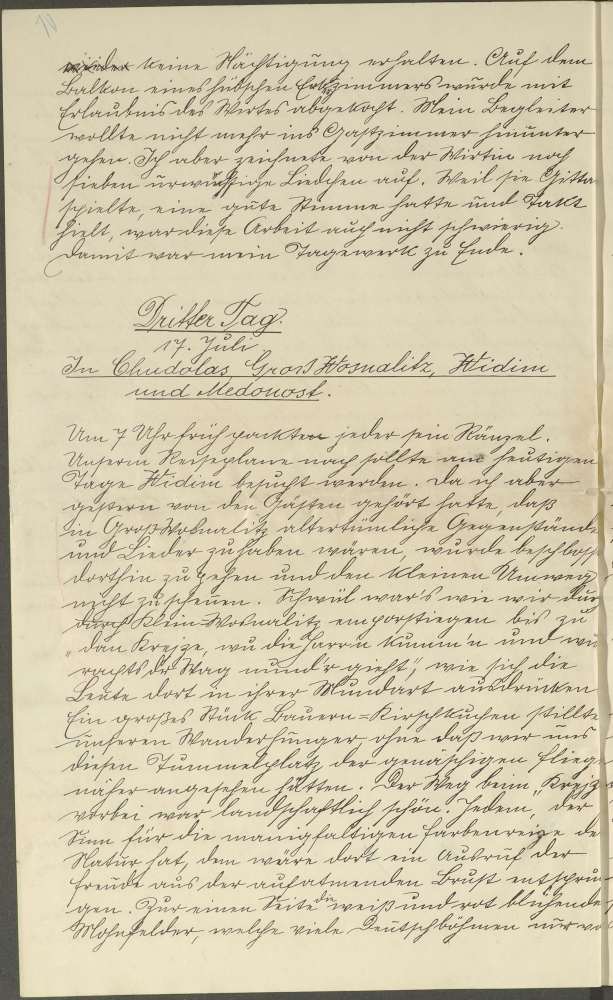 keine Nächtigung erhalten. Auf dem
Balkon eines hübschen Eckzimmers wurde mit
Erlaubnis des Wirtes abgekocht. Mein Begleiter
wollte nicht mehr ins Gastzimmer hinunter
gehen. Ich aber zeichnete von der Wirtin noch
sieben urwüchsige Liedchen auf. Weil sie Gitta
spielte, eine gute Stimme hatte und Takt
hielt, war diese Arbeit auch nicht schwierig.
Damit war mein Tagewerk zu Ende.
Dritter Tag.
17. Juli
In Chudolas, Gross Wosnalitz, Widim
und Medonost.
Um 7 Uhr früh packten jeder sein Ränzel.
Unserm Reiseplane nach sollte am heutigen
Tage Widim besucht werden. Da ich aber
gestern von den Gästen gehört hatte, daß
in Groß-Wosnalitz altertümliche Gegenstände
und Lieder zu haben wären, wurde beschloss
dorthin zu gehen und den kleinen Umweg
nicht zu scheuen. Schwül war's wie wir dur
durch Klein-Wosnalitz emporstiegen bis zu
"dan Krejze, wu die Harrn kumm'n und wu
rachts dr Wag num'r gieht", wie sich die
Leute dort in ihrer Mundart ausdrücken
Ein großes Stück Bauern-Kirschkuchen stillte
unseren Wanderhunger ohne daß wir uns
diesen Tummelplatz der genäschigen Flieg
näher angesehen hätten. Der Weg beim "Krejz
vorbei war landschaftlich schön. Jedem, der
Sinn für die mannigfaltigen Farbenreize de
Natur hat, dem wäre dort ein Ausruf der
Freude aus der aufatmenden Brust entsprun
gen. Zur einen Seite die weiß und rot blühende
Mohnfelder, welche viele Deutschböhmen nur vo